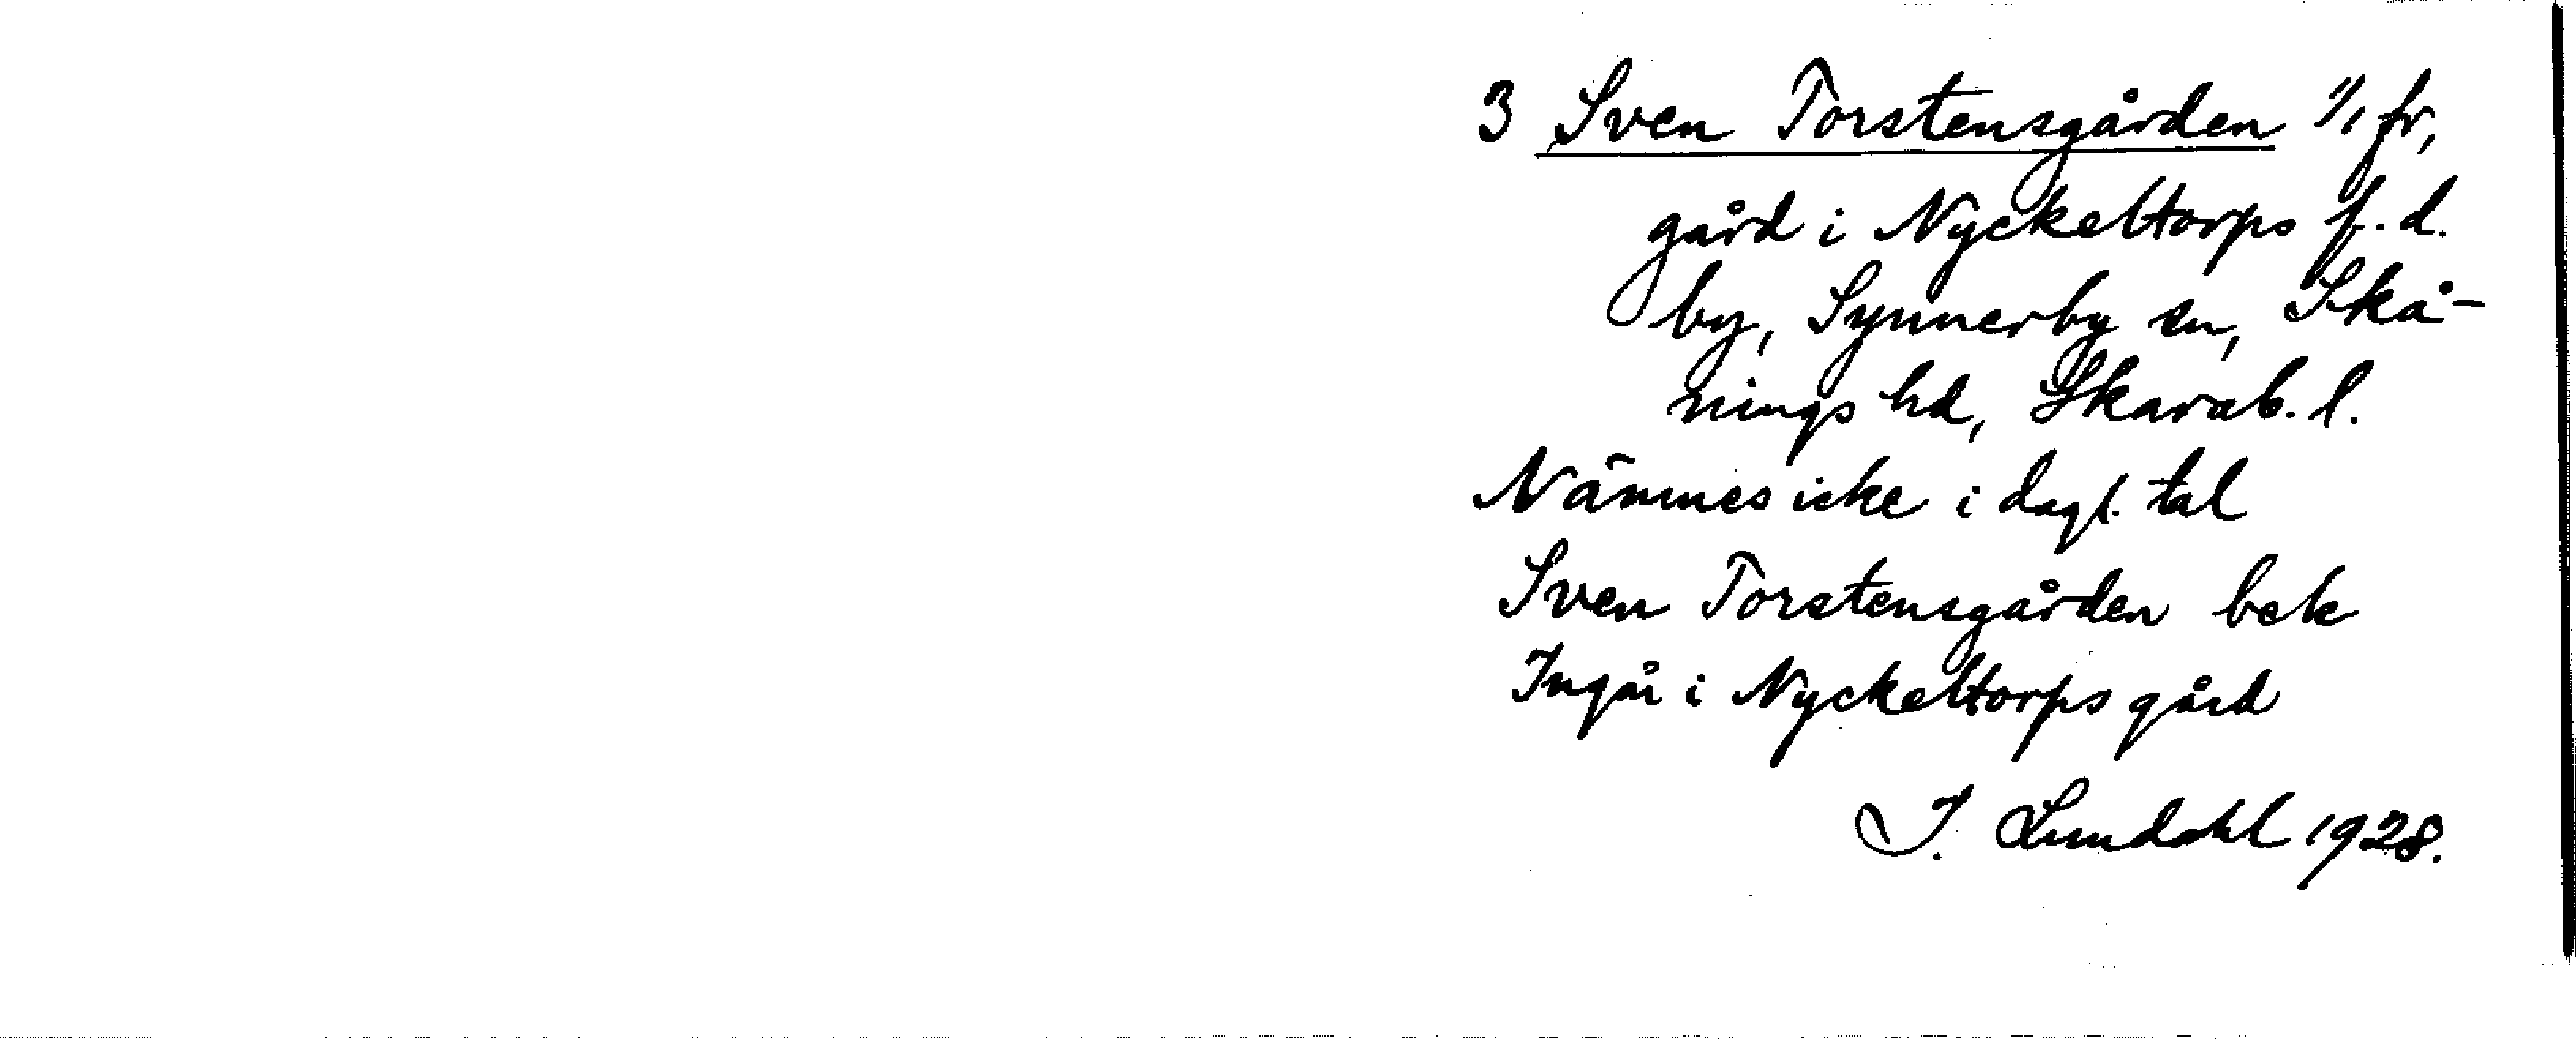 3 Sven Torstensgården 1/1 fr,
gård i Nyckeltorps f.d.
by, Synnerby sn, Skå-
nings hd, Skarab. l.
Nämnes icke i dagl. tal
Sven Torstensgården bek
Ingår i Nyckeltorps gård
I. Lundahl 1928.